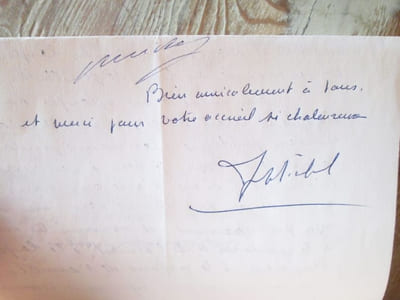 Bien amicalement à tous.
et merci pour votre accueil si chaleureux